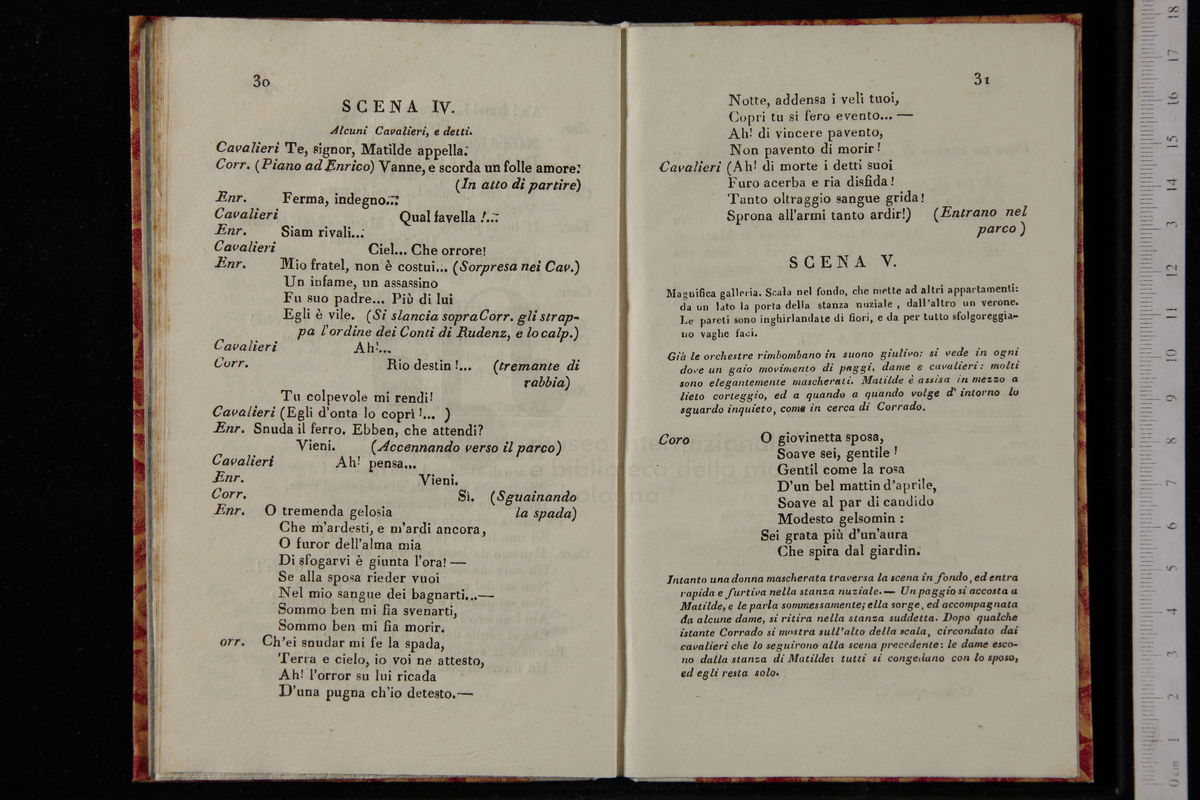 30
SCENA IV.
Alcuni Cavalieri, e detti.
Cavalieri Te, signor, Matilde appella.
Corr. (Piano ad Enrico) Vanne, e scorda un folle amore:
(In atto di partire)
Enr. Ferma, indegno...
Cavalieri Qual favella !...
Enr. Siam rivali...
Cavalieri Ciel... Che orrore!
Enr. Mio fratel, non è costui... (Sorpresa nei Cav.)
Un infame, un assassino
Fu suo padre... Più di lui
Egli è vile. (Si slancia sopra Corr. gli strap-
pa l'ordine dei Conti di Rudenz, e lo calp.)
Cavalieri Ah!...
Corr. Rio destin !... (tremante di
rabbia)
Tu colpevole mi rendi!
Cavalieri (Egli d'onta lo coprì !... )
Enr. Snuda il ferro. Ebben, che attendi?
Vieni. (Accennando verso il parco)
Cavalieri Ah! pensa...
Enr. Vieni.
Corr. Si. (Sguainando
Enr. O tremenda gelosia la spada)
Che m'ardesti, e m'ardi ancora,
O furor dell'alma mia
Di sfogarvi è giunta l'ora! —
Se alla sposa rieder vuoi
Nel mio sangue dei bagnarti...—
Sommo ben mi fia svenarti,
Sommo ben mi fia morir.
orr. Ch'ei snudar mi fe la spada,
Terra e cielo, io voi ne attesto,
Ah! l'orror su lui ricada
D'una pugna ch'io detesto.—
31
Notte, addensa i veli tuoi,
Copri tu si fero evento... —
Ah! di vincere pavento,
Non pavento di morir!
Cavalieri (Ah! di morte i detti suoi
Furo acerba e ria disfida!
Tanto oltraggio sangue grida!
Sprona all'armi tanto ardir!) (Entrano nel
parco )
SCENA V.
Magnifica galleria. Scala nel fondo, che mette ad altri appartamenti:
da un lato la porta della stanza nuziale , dall'altro un verone.
Le pareti sono inghirlandate di fiori, e da per tutto sfolgoreggia-
no vaghe faci.
Già le orchestre rimbombano in suono giulivo: si vede in ogni
dove un gaio movimento di paggi, dame e cavalieri: molti
sono elegantemente mascherati. Matilde è assisa in mezzo a
lieto corteggio, ed a quando a quando volge d' intorno lo
sguardo inquieto, come in cerca di Corrado.
Coro O giovinetta sposa,
Soave sei, gentile !
Gentil come la rosa
D'un bel mattin d'aprile,
Soave al par di candido
Modesto gelsomin :
Sei grata più d'un'aura
Che spira dal giardin.
Intanto una donna mascherata traversa la scena in fondo, ed entra
rapida e furtiva nella stanza nuziale.— Un paggio si accosta a
Matilde, e le parla sommessamente; ella sorge, ed accompagnata
da alcune dame, si ritira nella stanza suddetta. Dopo qualche
istante Corrado si mostra sull'alto della scala, circondato dai
cavalieri che lo seguirono alla scena precedente: le dame esco-
no dalla stanza di Matilde: tutti si congedano con lo sposo,
ed egli resta solo.
museo internazionale
e biblioteca della musica
bologna
0 cm 1 2 3 4 5 6 7 8 9 10 11 12 13 14 15 16 17 18